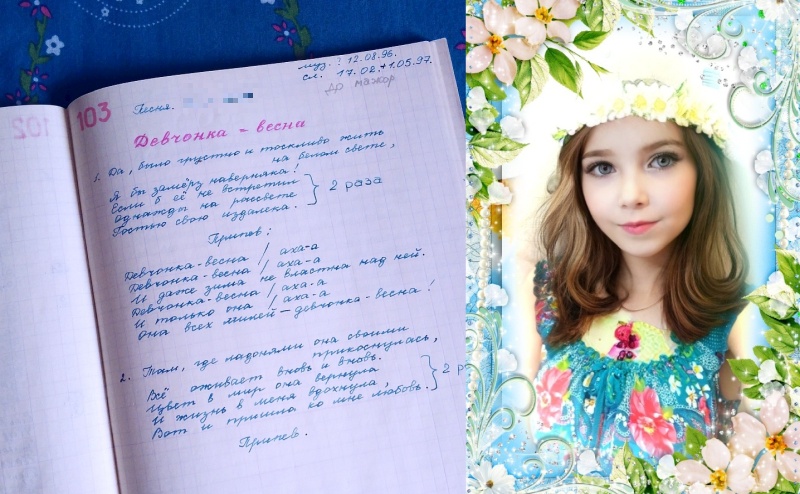 муз.? 12.08.96.
сл. 17.02.+1.05.97.
103
102
Песня.
Девчонка - весна
1. Да, было грустно и тоскливо жить
на белом свете,
Я б замёрз наверняка!
Если б её не встретил
Однажды на рассвете
Гостью свою издалека.
} 2 раза
Припев:
Девчонка-весна / аха-а
Девчонка-весна / аха-а
И даже зима не властна над ней.
Девчонка-весна / аха-а
И только она / аха-а
Она всех милей — девчонка-весна!
2. Там, где ладонями она своими
прикоснулась,
Всё оживает вновь и вновь.
Цвет в мир она вернула
И жизнь в меня вдохнула,
Вот и пришла ко мне любовь.
} 2 ра
Припев.